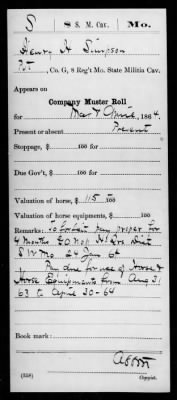 S | 8 S. M. Cav. | Mo.
Henry H Simpson
Pvt, Co. G, 8 Reg't Mo. State Militia Cav.
Appears on
Company Muster Roll
for Mar & April, 1864.
Present or absent Present
Stoppage, $ 100 for
Due Gov't, $ 100 for
Valuation of horse, $ 115 100
Valuation of horse equipments, $ 100
Remarks: To forfeit pay proper for
4 Months G O No Hd Qrs Dist
S W Mo 24 Jan 64
Pay due for use of Horse &
Horse Equipments from Aug 31
63 to April 30-64
Book mark:
(358)
Copyist.